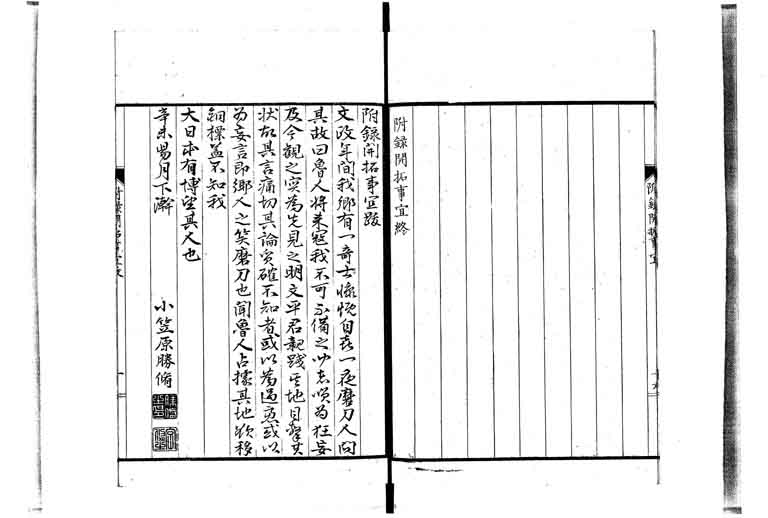 附録開拓事宜終
附録開拓事宜
附録開拓事宜跋
文政年間我郷有一奇士慷慨自喜一夜磨刀人問
其故曰魯人将来寇我不可不備之以為狂妄
及今観之実為先見之明文平君親践其地目撃其
状故其言痛切其論実確不知者或以為過慮或以
為妄言即郷人之笑磨刀也聞魯人占據其地欲移
銅標蓋不知我
大日本有博望其人也
辛未陽月下澣
小笠原勝脩